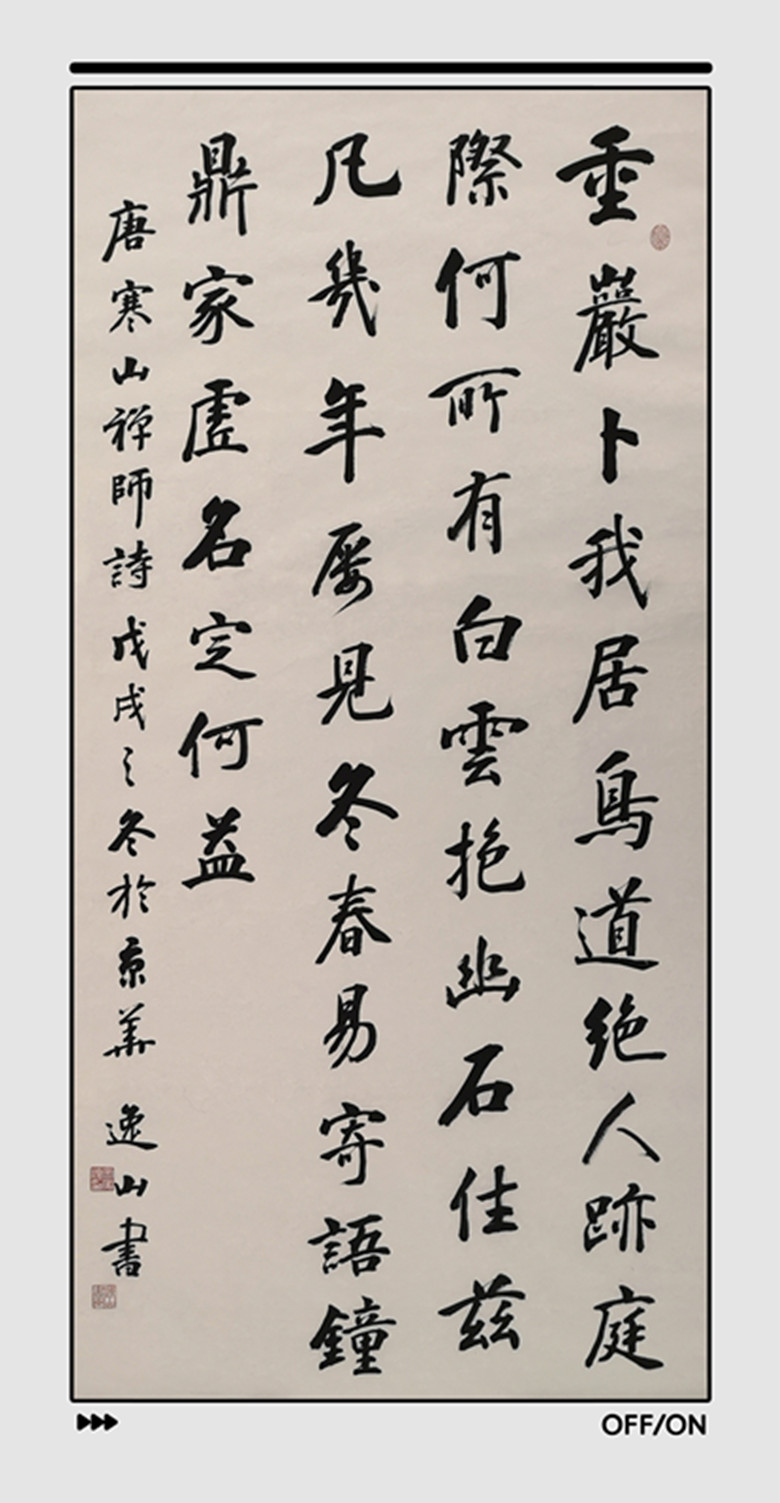 重巖卜我居鳥道绝人跡庭
際何所有白雲抱幽石住兹
凡幾年屡見冬春易寄語鐘
鼎家虚名定何益
唐寒山禅師詩戊戌之冬於京華 逸山書
OFF/ON